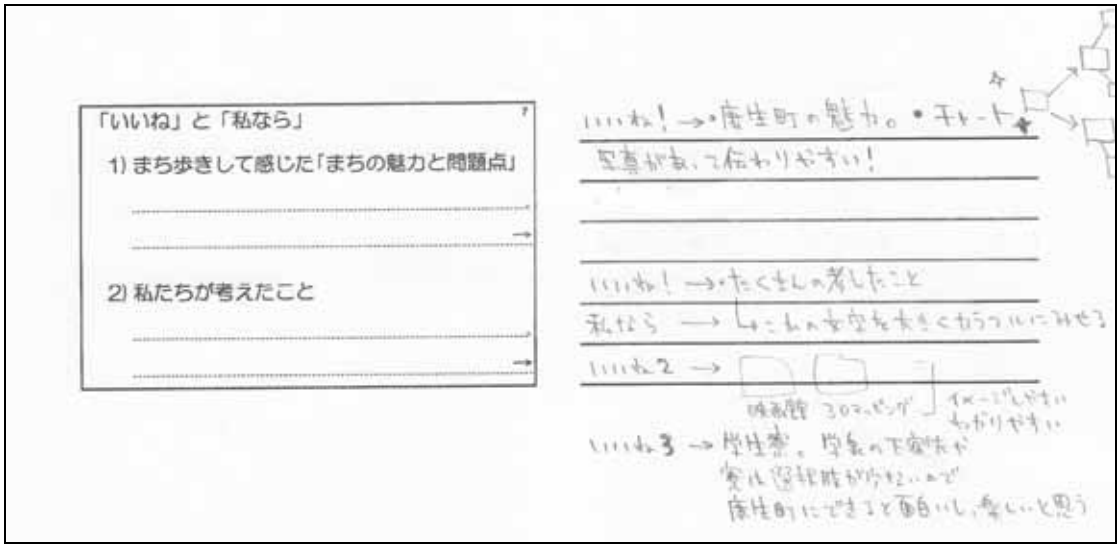 「いいね」と「私なら」
1) まち歩きして感じた「まちの魅力と問題点」
→
2) 私たちが考えたこと
→
いいね! →・康生町の魅力。 ・チャート
写真があって伝わりやすい!
いいね! →・たくさんの考したこと
私なら → ↳これの文字を大きくカラフルにみせる
いいね2 →
映画館 3Dマッピング
イメージしやすい
わかりやすい
いいね3 → 学生寮。 学泉の下宿先や
寮は選択肢が少ないので
康生町にできると面白いし、楽しいと思う